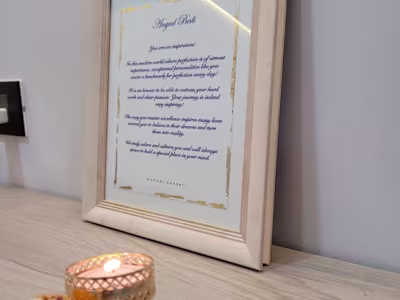 Angad Bedi
You are an inspiration!
In this modern world where perfection is of utmost
importance, exceptional personalities like you
create a benchmark for perfection every day!
It is an honour to be able to witness your hard
work and sheer passion. Your journey is indeed
very inspiring!
The way you master excellence inspires many lives
around you to believe in their dreams and turn
them into reality.
We truly adore and admire you and will always
strive to hold a special place in your mind.